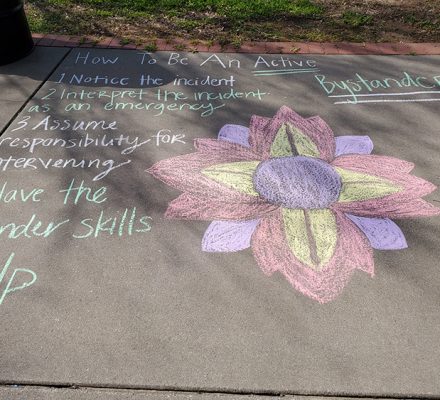 How To Be An Active
Bystander
1 Notice the incident
2 Interpret the incident
as an emergency
3 Assume
responsibility for
intervening
Have the
skills